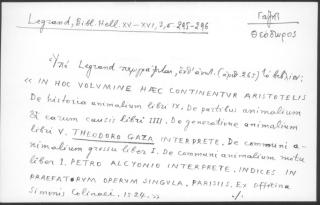 Legrand, Bibl. Hell. XV–XVI, 3, σ 295-296
Γαζῆς
Θεόδωρος
Ὑπὸ Legrand περιγράφεται, ἐνθ' ἀνωτ. (ἀριθ. 265) τὸ βιβλίον:
« IN HOC VOLVMINE HÆC CONTINENTVR ARISTOTELIS
De historia animalium libri IX; De partibus animalium
& earum causis libri IIII; De generatione animalium
libri V. THEODORO GAZA INTERPRETE. De communi a-
nimalium gressu liber I. De communi animalium motu
liber I. PETRO ALCYONIO INTERPRETE. INDICES IN
PRAEFATORVM OPERVM SINGVLA, PARISIIS, Ex officina
Simonis Colinaei. 1524. »